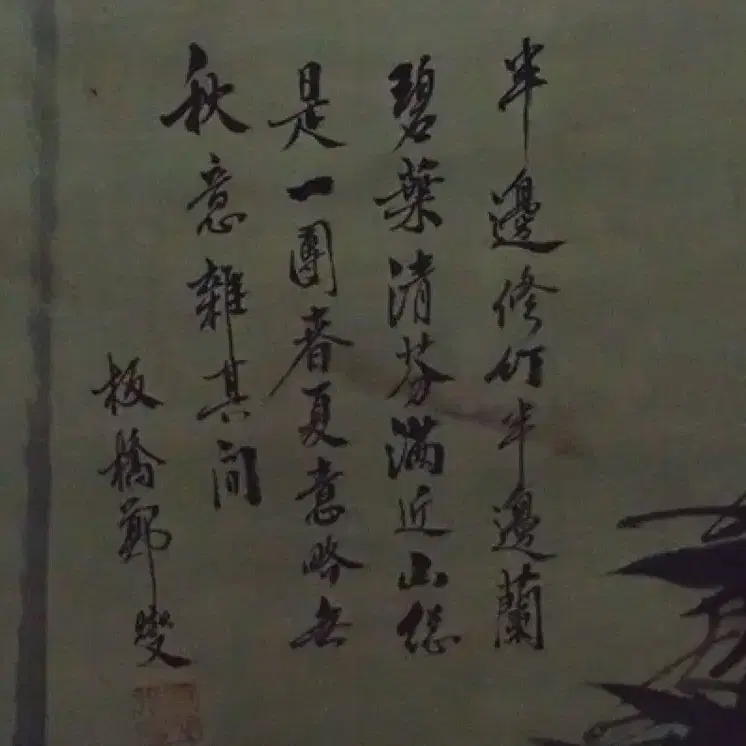 半邊修竹半邊蘭
碧葉清芬滿近山總
是一團春夏意略無
秋意雜其间
板橋鄭燮